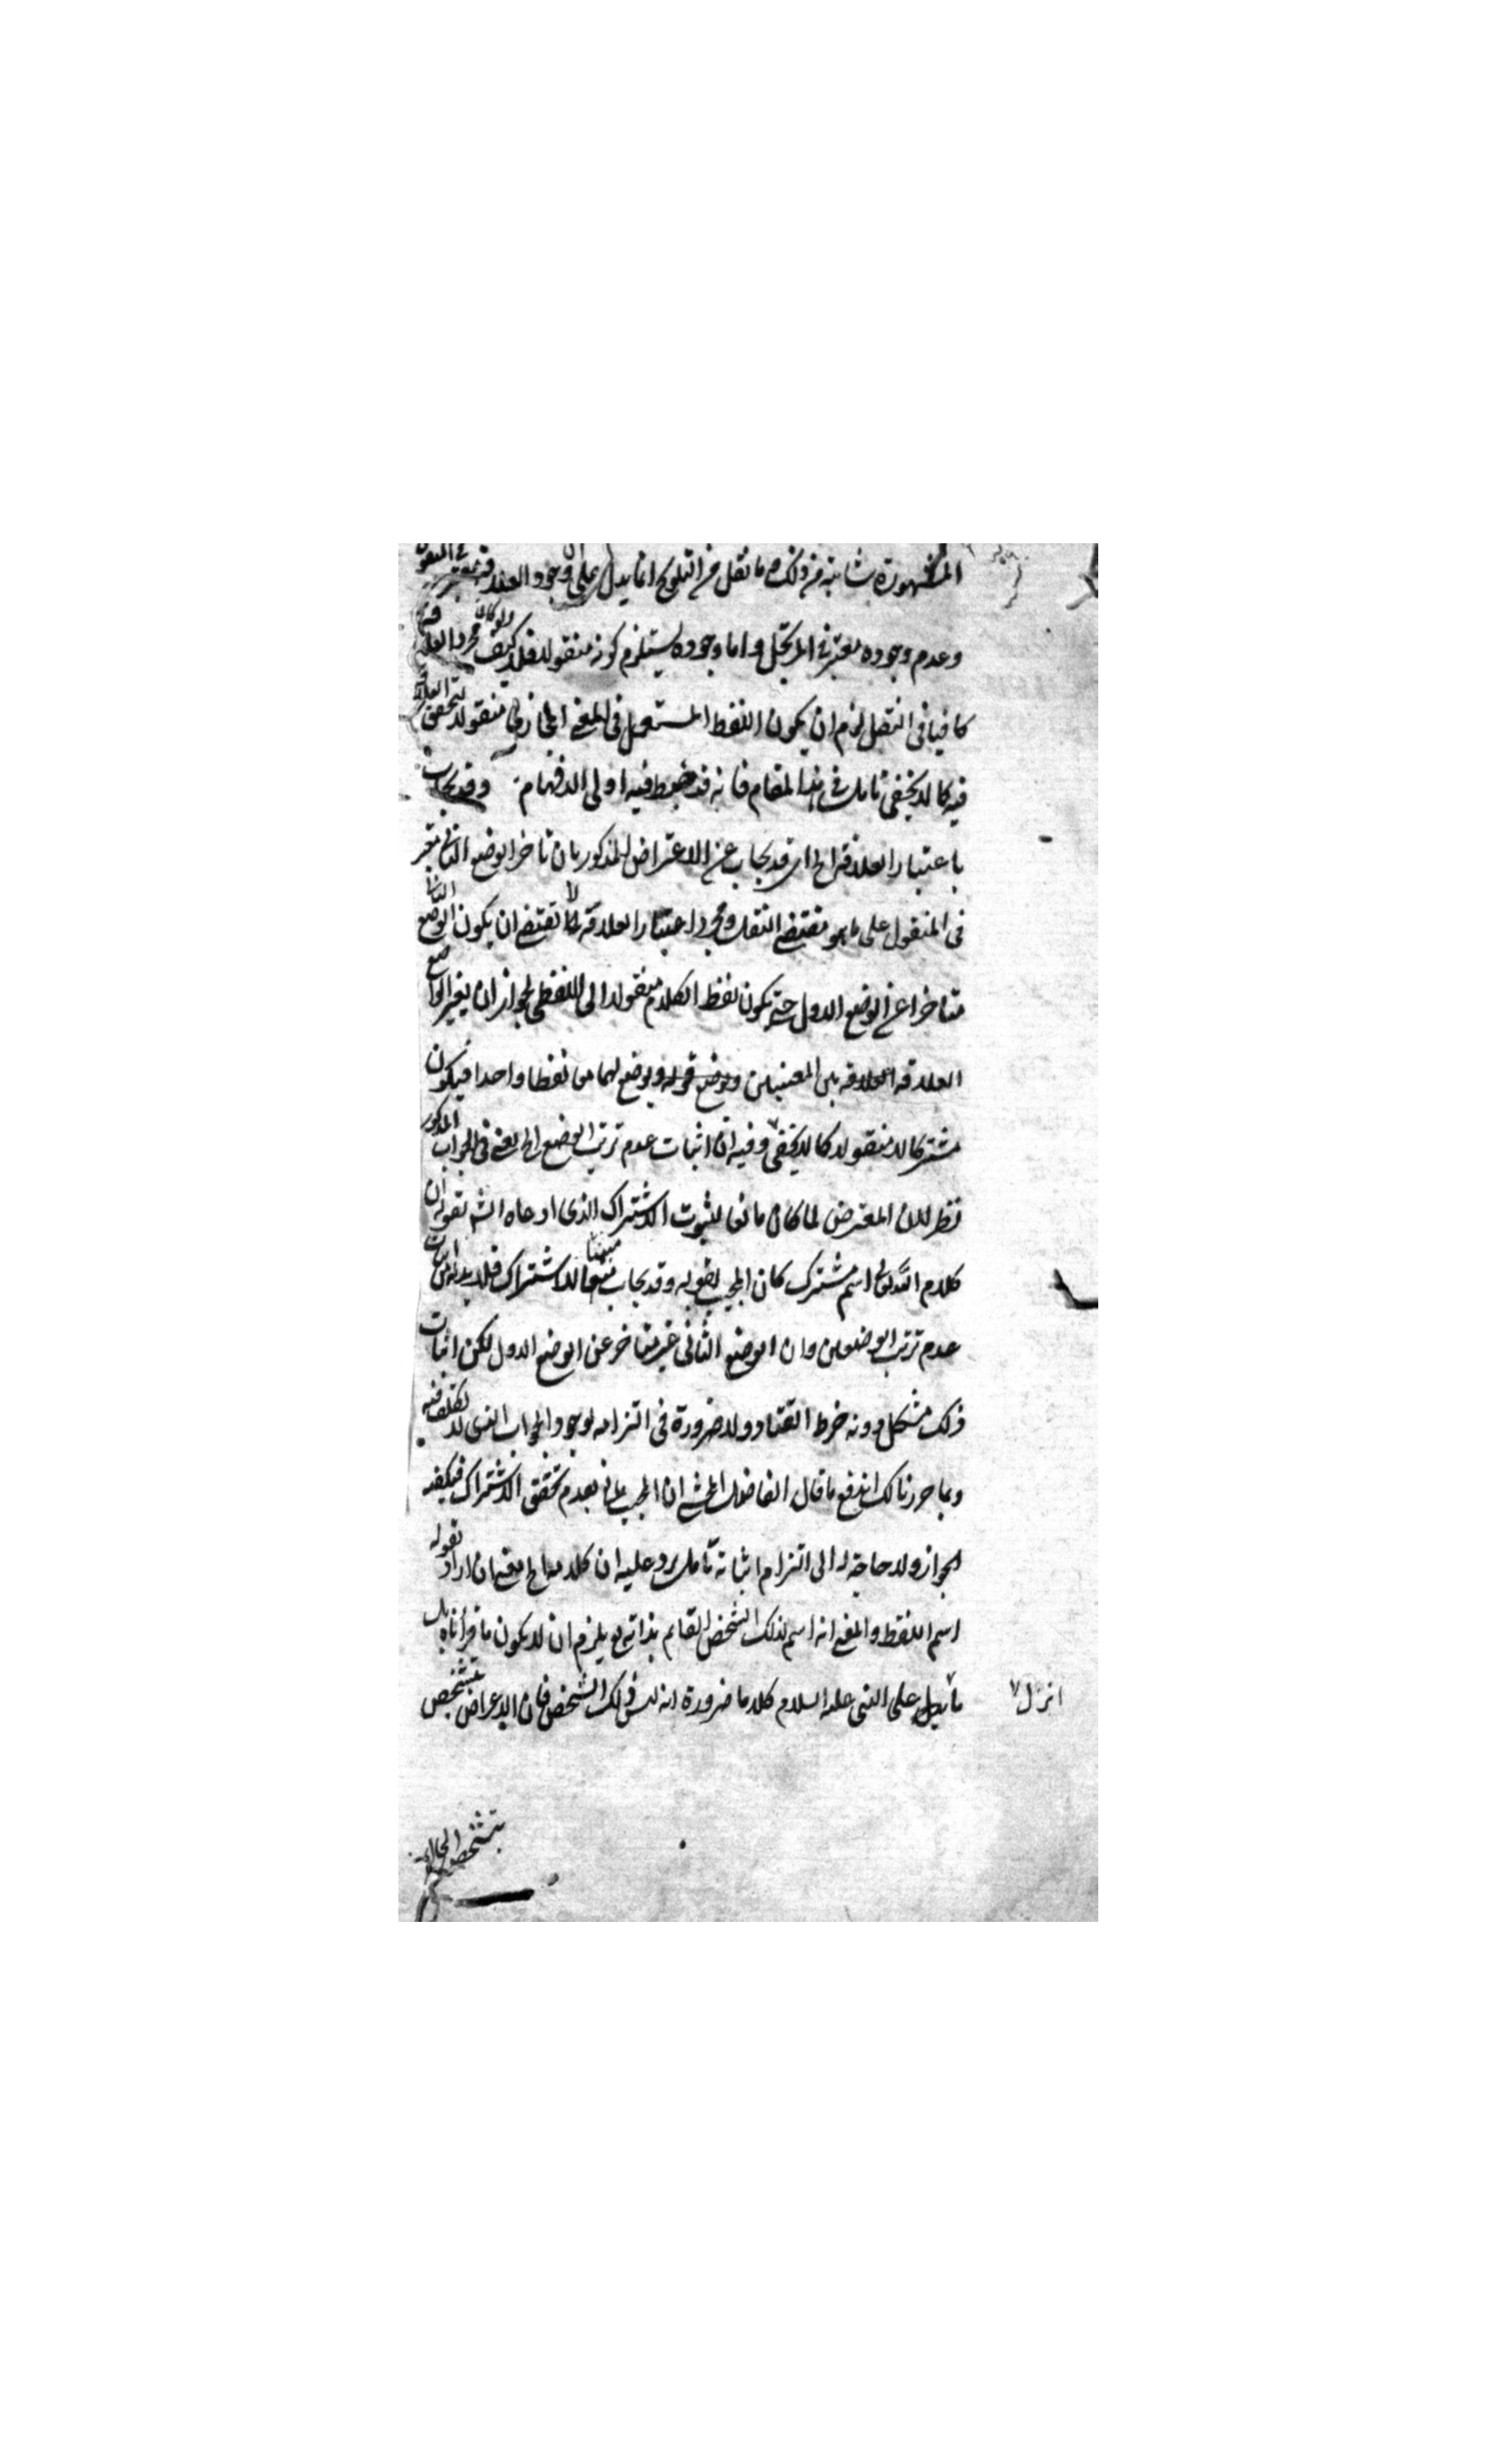 المشهورة شائبة من ذلك وما نقل من التلويح انما يدل على ان وجود العلاقة معتبر في المنقول
وعدم وجوده معتبر في المرتجل واما وجوده يستلزم كونه منقولا فلا كيف ولو كان مجرد العلاقة
كافيا في النقل لزم ان يكون اللفظ المستعمل في المعنى المجازى منقولا لتحقق العلاقة
فيه كما لا يخفى تامل في هذا المقام فانه قد خبط فيه اولى الافهام وقد يجاب
باعتبار العلاقة الخ اى قد يجاب عن الاعتراض المذكور بان تاخر الوضع الثانى معتبر
في المنقول على ما هو مقتضى النقل ومجرد اعتبار العلاقة لا تقتضى ان يكون الوضع الثانى
متاخرا عن الوضع الاول حتى يكون لفظ الكلام منقولا الى اللفظى لجواز ان يعتبر الواضع
العلاقة بين المعنيين ويوضع لهما معا لفظا واحدا فيكون
مشتركا لا منقولا كما لا يخفى وفيه ان اثبات عدم ترتب الوضع الخ يعنى في الجواب المذكور
نظر لان المعترض لما كان مانعا لثبوت الاشتراك الذى ادعاه الشه بقوله ان
كلام الله تعالى اسم مشترك كان المجيب بقوله وقد يجاب مثبتا للاشتراك فلا بد له من اثبات
عدم ترتب الوضعين وان الوضع الثانى غير متاخر عن الوضع الاول لكن اثبات
ذلك مشكل دونه خرط القتاد ولا ضرورة في التزامه لوجود الجواب الذى لا تكلف فيه
وبما حررنا لك اندفع ما قال الفاضل المحشى ان المجيب مانع بعدم تحقق الاشتراك فيكفيه
الجواز ولا حاجة له الى التزام اثباته تامل يرد عليه ان كلامه الخ يعنى ان اراد بقوله
اسم اللفظ والمعنى انه اسم لذلك الشخص القايم بذاته تع يلزم ان لا يكون ما قرأناه بل
ما انزل على النبى عليه السلام كلاما ضرورة انه ليس ذلك الشخص فان الاعراض تتشخص
بتشخص المحال